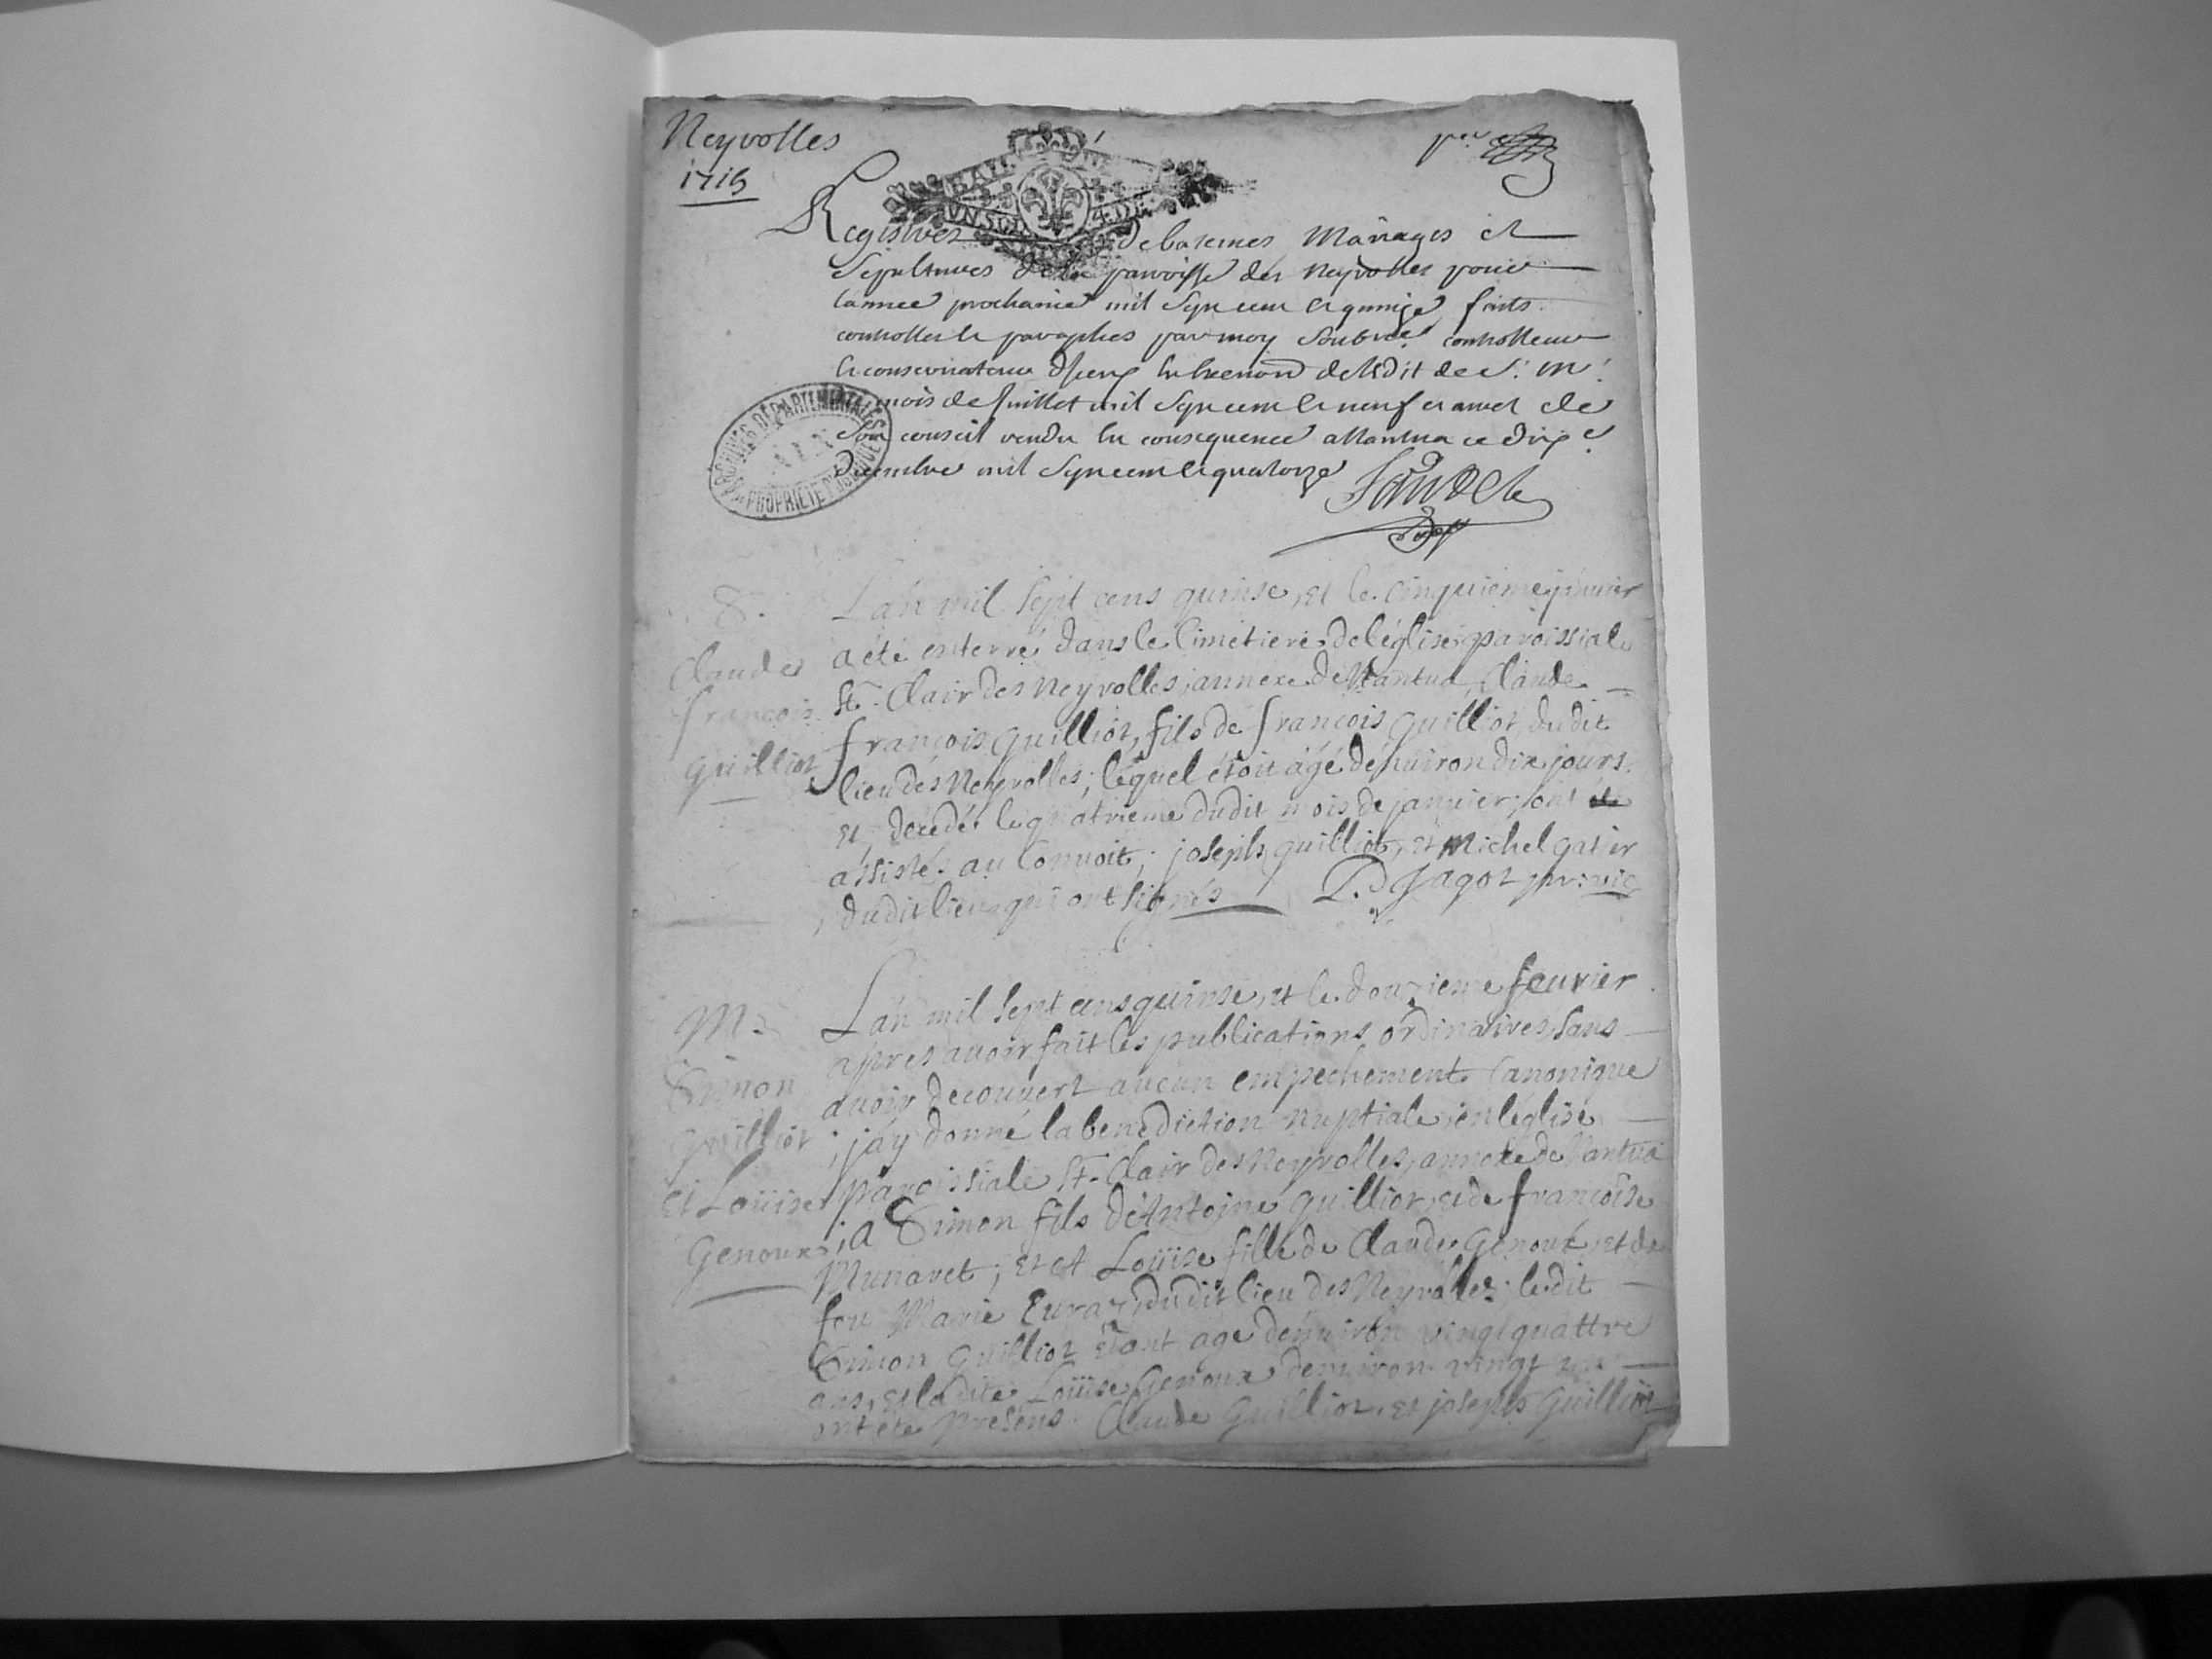 Neyrolles
1715
Registres de batemes Mariages et
Sepultures de la parroisse des Neyrolles pour
lannee prochaine mil Sept cent et quinze faits
controllés et paraphés par moy Soubné controlleur
et conservateur d'iceux en execution de l'edit de S. M.
du mois de Juillet mil Sept cent et neuf et arrest de
Son conseil rendu en consequence a Nantua ce dix e
decembre mil Sept cent et quatorze
ARCHIVES DÉPARTEMENTALES
AIN
PROPRIÉTÉ PUBLIQUE
S.
Claude
françois
Guilliot
L'an mil sept cens quinse, et le cinquieme janvier
a été enterré dans le cimetiere de l'église paroissiale
St. Clair des Neyrolles, annexe de Nantua, Claude
françois Guilliot, fils de françois Guilliot, dudit
lieu des Neyrolles; lequel étoit agé d'environ dix jours
et decedé le quatrieme dudit mois de janvier; ont
assisté au convoit; joseph guilliot, et Michel gatier
dudit lieu qui ont signés P. Jagot pr. vic
M.
Simon
Guilliot
et Loüise
Genoux
L'an mil sept cens quinse, et le douzieme feuvrier
apres avoir fait les publications ordinaires, sans
avoir decouvert aucun empechement canonique
; j'ay donné la benediction nuptiale, en l'église
paroissiale St. Clair des Neyrolles, annexe de Nantua
; a Simon fils d'Antoine guilliot, et de françoise
Munavet; et a Loüise fille de Claude Genoux, et de
feu Marie Euraz, dudit lieu des Neyrolles; ledit
Simon Guilliot etant agé d'environ vingt quattre
ans, et ladite Loüise Genoux d'environ vingt
ont été presens Claude Guilliot, et joseph Guilliot